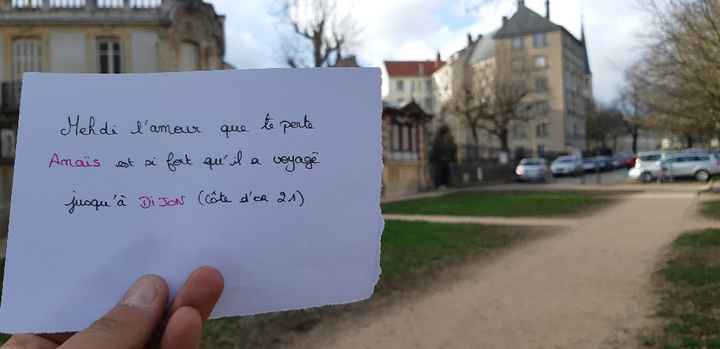 Mehdi l'amour que te porte
Anaïs est si fort qu'il a voyagé
jusqu'à DIJON (côte d'or 21)